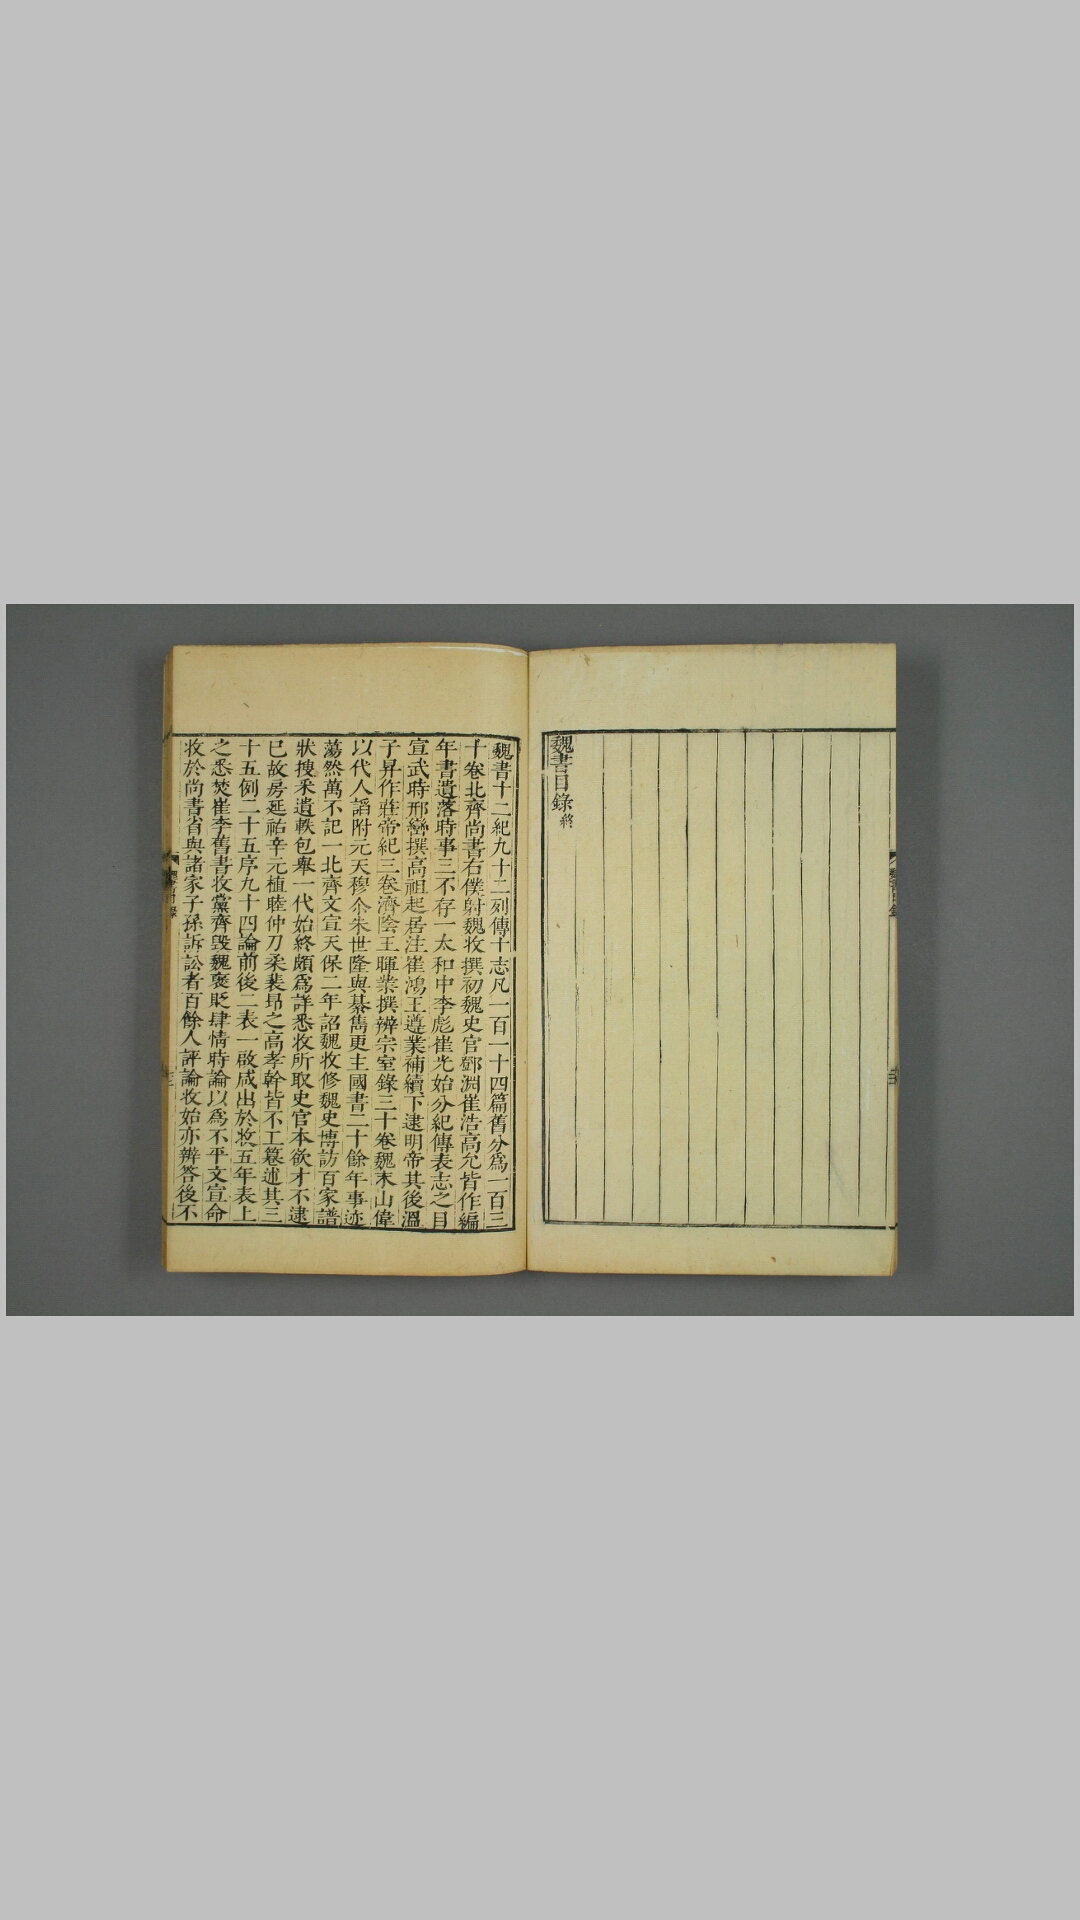 魏書目錄終
魏書十二紀九十二列傳十志凡一百一十四篇舊分爲一百三
十卷北齊尚書右僕射魏收撰初魏史官鄧淵崔浩高允皆作編
年書遺落時事三不存一太和中李彪崔光始分紀傳表志之目
宣武時邢巒撰高祖起居注崔鴻王遵業補續下逮明帝其後溫
子昇作莊帝紀三卷濟陰王暉業撰辨宗室錄三十卷魏末山偉
以代人諂附元天穆尒朱世隆與綦雋更主國書二十餘年事迹
蕩然萬不記一北齊文宣天保二年詔魏收修魏史博訪百家譜
狀搜采遺軼包舉一代始終頗爲詳悉收所取史官本欲才不逮
已故房延祐辛元植睦仲刀柔裴昂之高孝幹皆不工纂述其三
十五例二十五序九十四論前後二表一啟成出於收五年表上
之悉焚崔李舊書收黨齊毀魏褒貶肆情時論以爲不平文宣命
收於尚書省與諸家子孫訴訟者百餘人評論收始亦辨答後不
魏書目錄
三